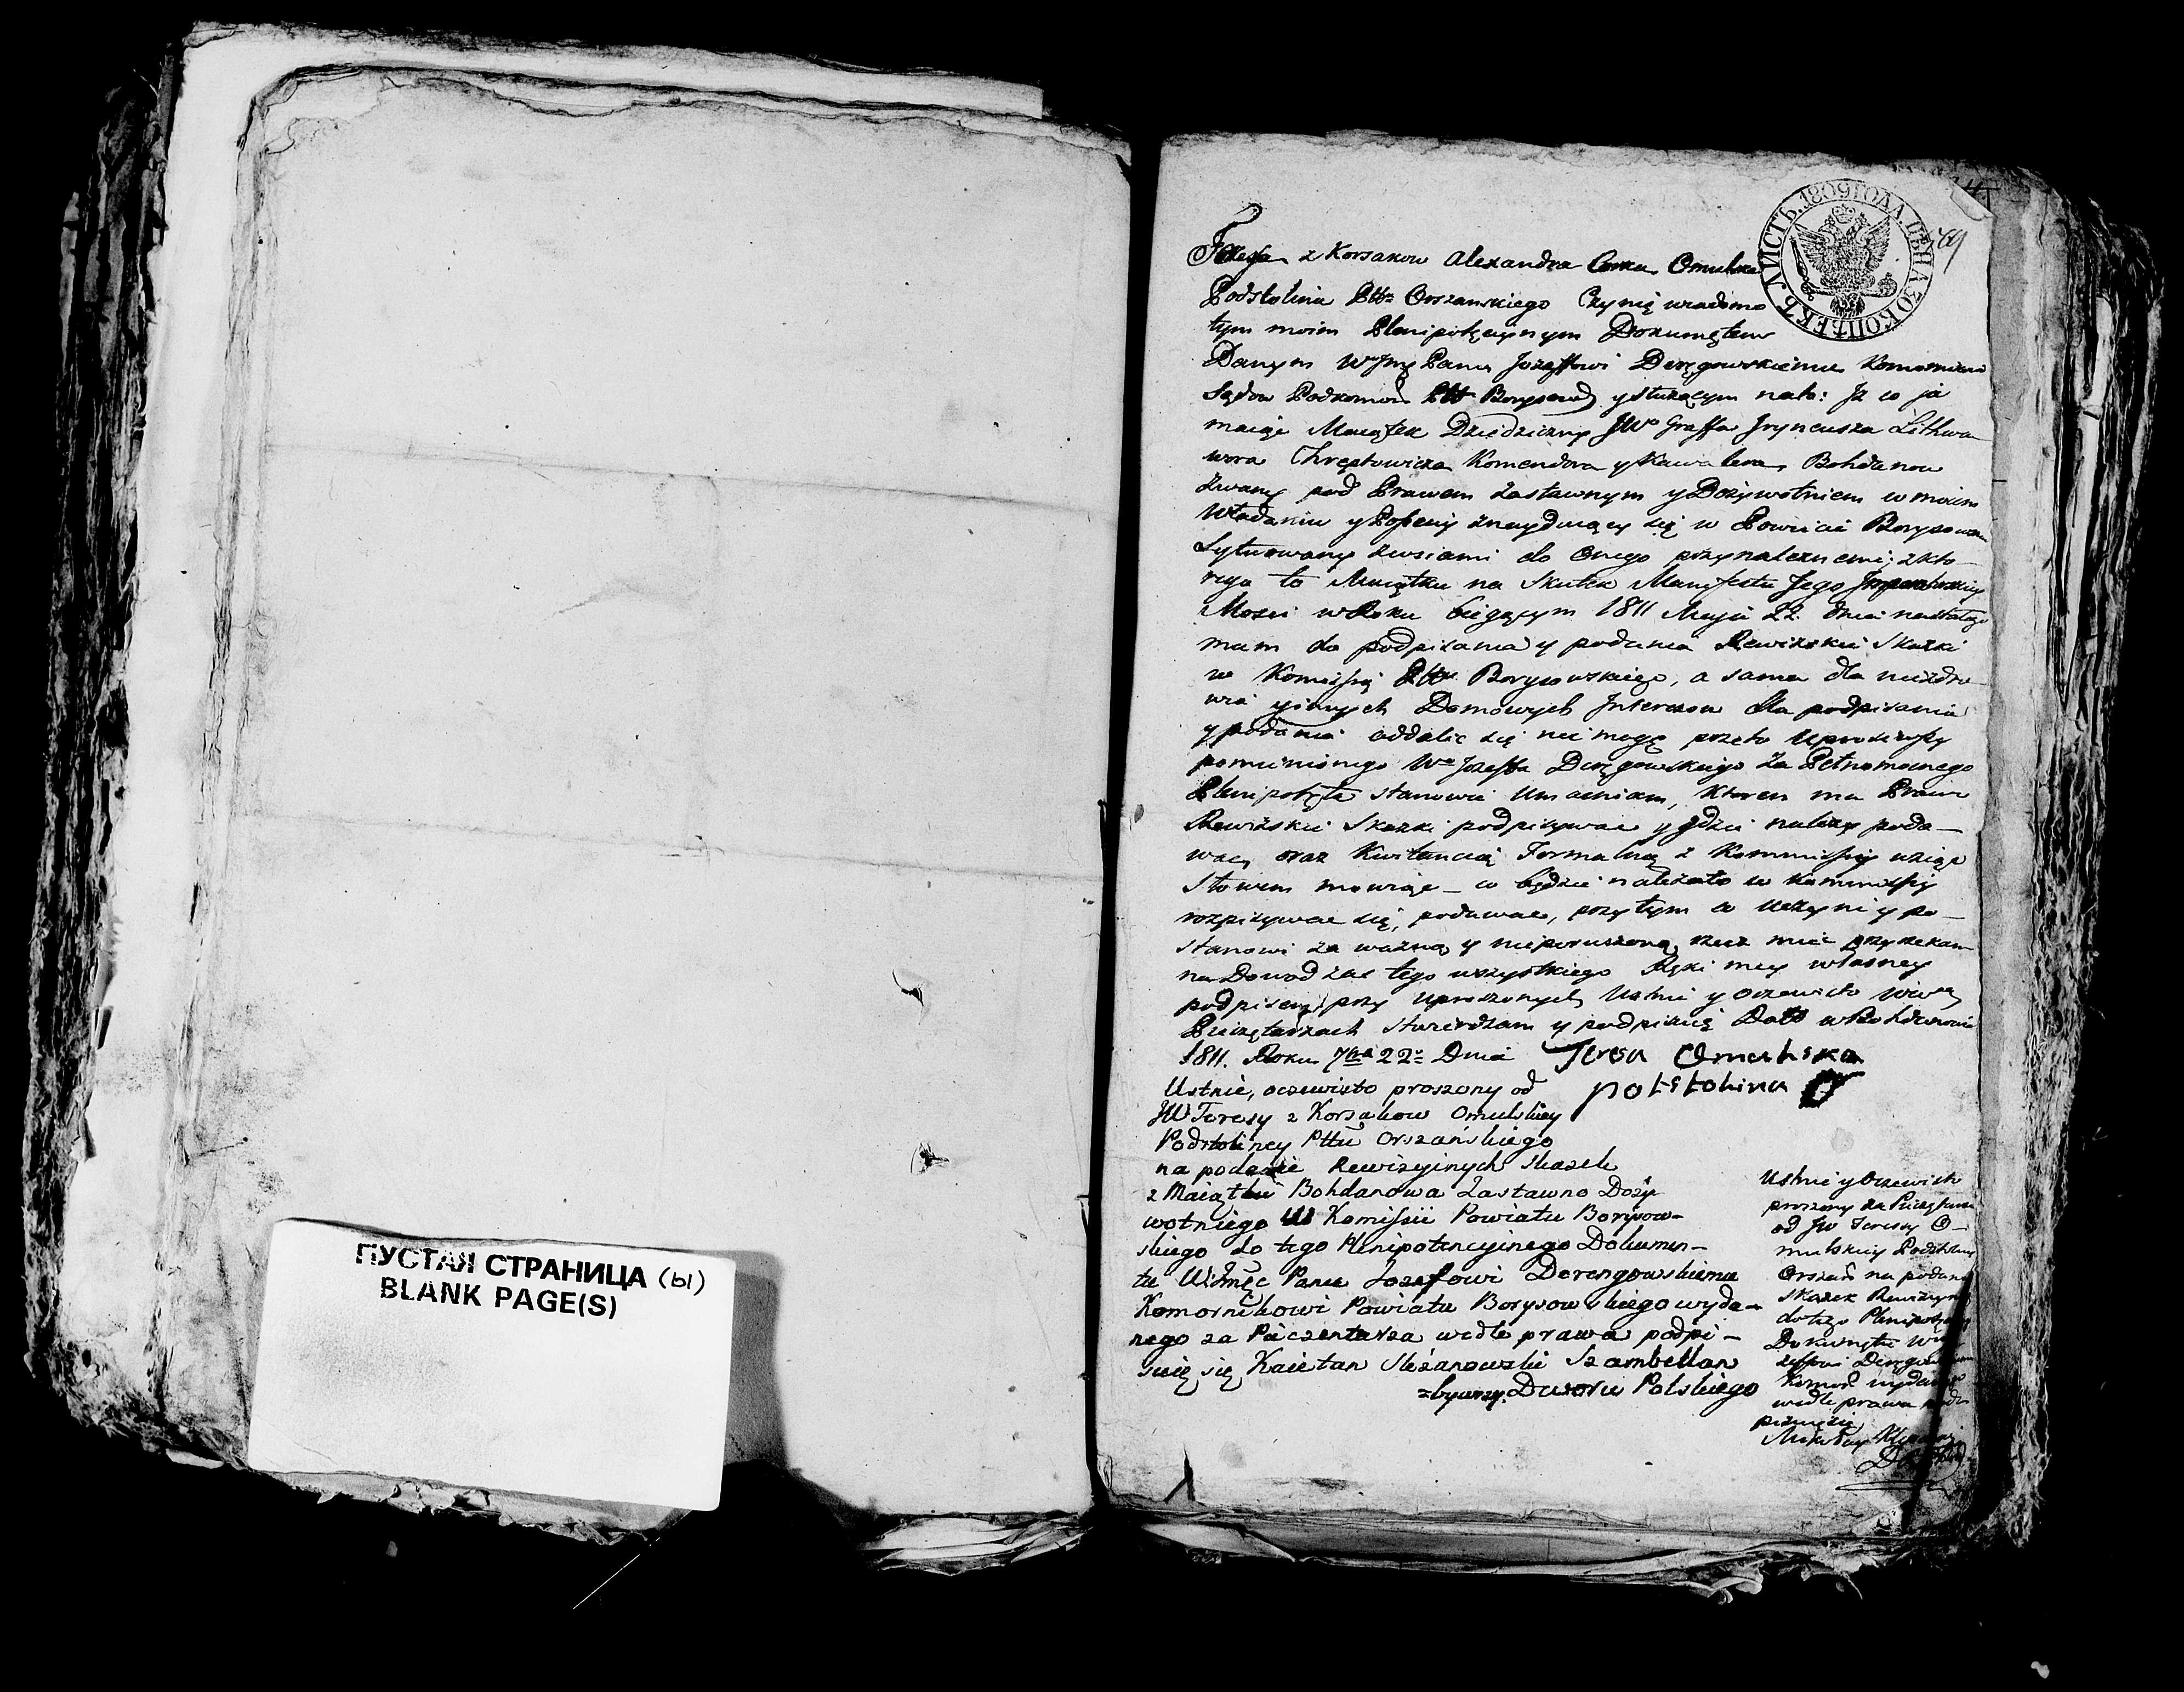 ПУСТАЯ СТРАНИЦА (ы)
BLANK PAGE(S)
ЛИСТЪ. 1809 ГОДА. ЦѢНА 30 КОПѢЕКЪ
Teresa z Korsakow Alexandra Corka Omulska
Podstolina Pttu Orszanskiego Czynię wiadomo
tym moim Plenipotęcyinym Dokumętem
Danym WJmę Panu Jozeffowi Deręgowskiemu Komornikowi
Sądow Podkomor Pttu Borysow y służącym na to: Iż co ja
maiąc Maiątek Dziedziczny JWo Graffa Jryneusza Lithwa
wora Chreptowicza Komendora y Kawalera, Bohdanow
zwany pod Prawem zastawnym y Dożywotniem w moim
Władaniu y Possesyi znayduiący się w Powiecie Borysow
Sytuowany zwsiami do onego przynależnemi; z kto
rego to Maiątku na Skutek Manifestu Jego Imperatorskiey
Mosci w Roku bieżącym 1811 Maja 22. dnia nastałego
mam do podpisania y podania Rewizskie Skazki
w Komissyi Pttu Borysowskiego, a sama dla niezdro
wia y innych Domowych Interesow dla podpisania
y podania oddalic się nie mogę przeto Uprosiwszy
pomienionego Wo Jozeffa Deręgowskiego za Pełnomocnego
Plenipotęta stanowie Umacniam, ktoren ma Prawo
Rewizskie Skazki podpisywac y gdzie należy poda—
wac, oraz Kwitancią Formalną z Kommissyi wziąc
Słowem mowiąc — co będzie należało w Kommissyi
rozpisywac się, podawac, przytym co uczyni y po—
stanowi za ważną y nieporuszoną rzecz miec przyrzekam
na Dowod zas tego wszystkiego Ręki mey własney
podpisem przy uproszonych Ustnie y oczewisto
Pieczętarzach stwierdzam y podpisuię Datt w Bohdanowie
1811. Roku 7bra 22. Dnia Teresa Omulska
potstolina
Ustnie, oczewisto proszony od
JW Teresy z Korsakow Omulskiey
Podstoliney Pttu Orszańskiego
na podanie Rewizyinych Skazek
z Maiątku Bohdanowa Zastawno Doży
wotniego W Komissii Powiatu Borysow—
skiego do tego Plenipotencyinego Dokumen—
tu WJmęc Panu Jozefowi Derengowskiemu
Komornikowi Powiatu Borysowskiego wyda—
nego za Pieczentarza wedle prawa podpi—
suię się Kaietan Szambellan
bywszy Dworu Polskiego
Ustnie y Oczewisto
proszony za Pieczętarza
od JW Teresy O—
mulskiey Podstoliney
Orszań na podanie
Skazek Rewizyinych
do tego
Dokumętu
Komor wydanego
wedle prawa podpi
pisuię się
Mikołay